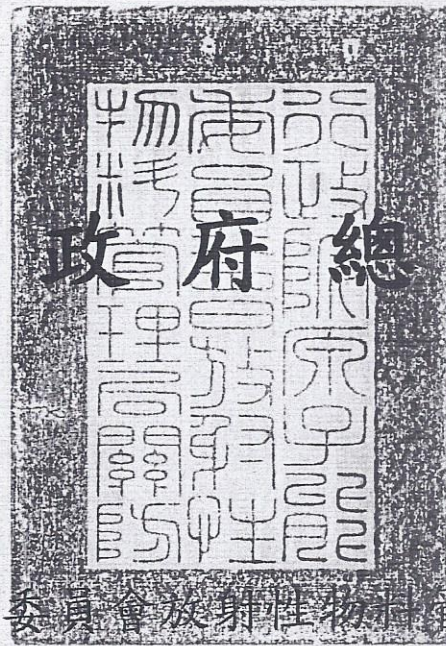 行政院原子能
委員會放射性
物料管理局關防
政府總
委員會放射性物料